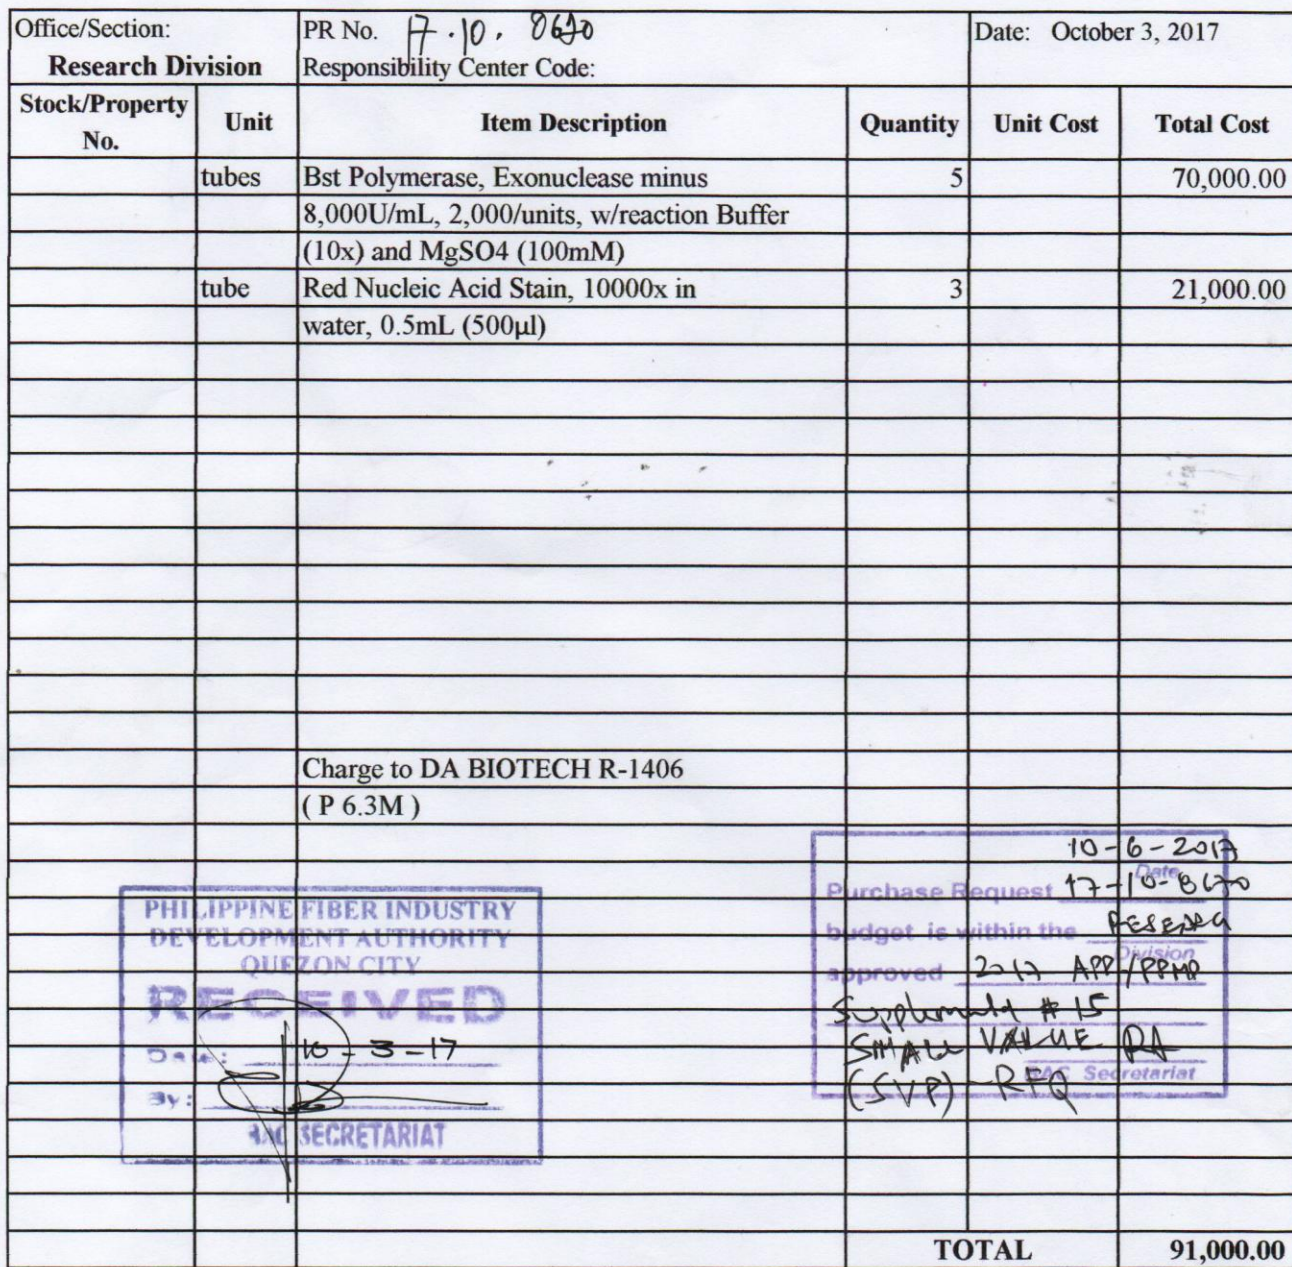 Office/Section:
Research Division
PR No. 17.10. 8670
Responsibility Center Code:
Date: October 3, 2017
Stock/Property No. Unit Item Description Quantity Unit Cost Total Cost
tubes Bst Polymerase, Exonuclease minus 5 70,000.00
8,000U/mL, 2,000/units, w/reaction Buffer
(10x) and MgSO4 (100mM)
tube Red Nucleic Acid Stain, 10000x in 3 21,000.00
water, 0.5mL (500µl)
Charge to DA BIOTECH R-1406
( P 6.3M )
PHILIPPINE FIBER INDUSTRY
DEVELOPMENT AUTHORITY
QUEZON CITY
RECEIVED
Date: 10-3-17
By:
BAC SECRETARIAT
10-6-2017
Date
Purchase Request 17-10-8670
budget is within the
Division
approved 2017 APP/PPMP
# 15
SMALL VALUE
BAC Secretariat
(SVP) - RFQ
TOTAL 91,000.00